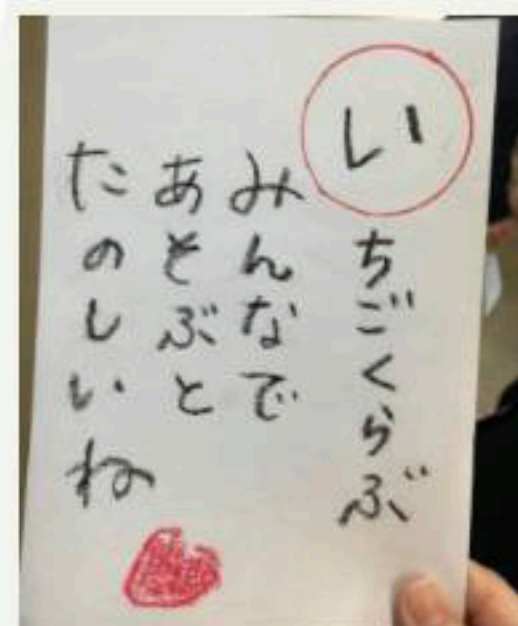 いちごくらぶ
みんなで
あそぶと
たのしいね